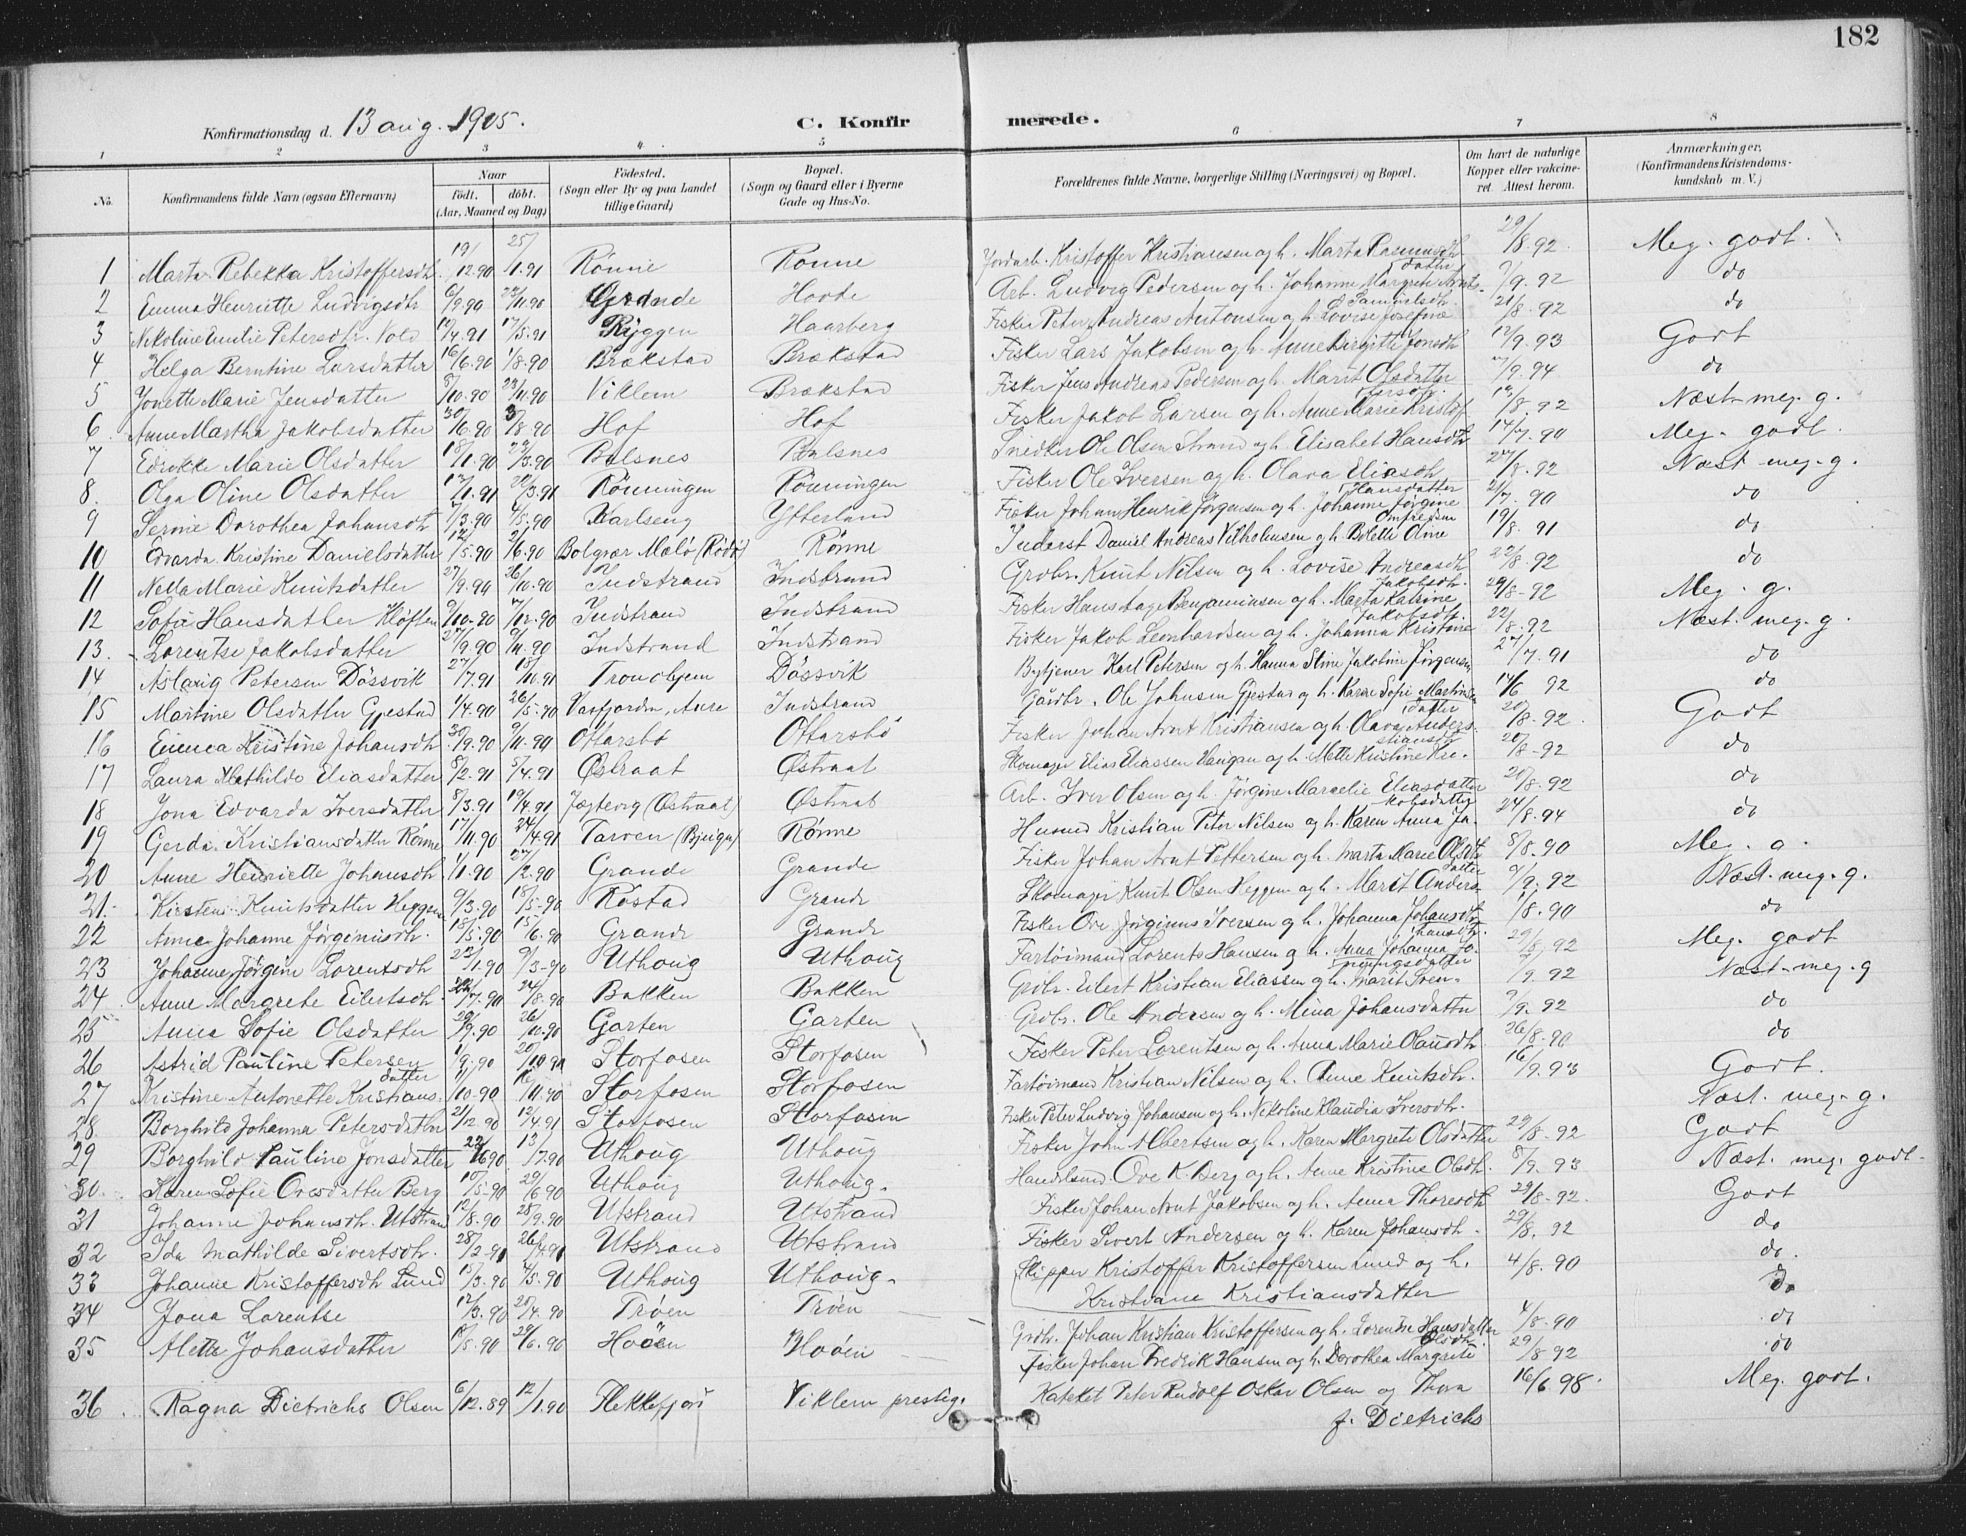 182
Konfirmationsdag d. 13 aug. 1905.
C. Konfirmerede.
1 2 3 4 5 6 7 8
No. Konfirmandens fulde Navn (ogsaa Efternavn) Naar födt. döbt. (Aar, Maaned og Dag) Födested. (Sogn eller By og paa Landet tillige Gaard) Bopæl. (Sogn og Gaard eller i Byerne Gade og Hus-No. Forældrenes fulde Navne, borgerlige Stilling (Næringsvei) og Bopæl. Om havt de naturlige Kopper eller vakcineret. Attest herom. Anmærkninger. (Konfirmandens Kristendomskundskab m. V.)
1 Marta Rebekka Kristoffersdtr. 19/12.90 25/1.91 Rönne Rönne Jordarb. Kristoffer Kristiansen og h. Marta Rasmusdtr 29/8.92 Meg. godt.
2 Emma Henriette Ludvigsdtr 6/9.90 23/11.90 Grande Hovde Arb. Ludvig Pedersen og h. Johanne Margrete Arntsdatter 7/9.92 do
3 Nikoline Emilie Petersdtr. Vold 12/4.91 17/5.91 Ryggen Haarberg Fisker Peter Andreas Antonsen og h. Lovise Josefine Samuelsdtr. 21/8.92 do
4 Helga Berntine Larsdatter 16/6.90 1/8.90 Brækstad Brækstad Fisker Lars Jakobsen og h. Anne Birgitte Jonsdtr 12/9.93 Godt
5 Jonette Marie Jensdatter 8/10.90 23/11.90 Viklem Brækstad Fisker Jens Andreas Pedersen og h. Marit Olsdatter 7/9.94 do
6 Anne Martha Jakobsdatter 30/6.90 3/8.90 Hof Hof Fisker Jakob Larsen og h. Anne Marie Kristofersdtr. /8.92 Næst meg. g.
7 Edvikke Marie Olsdatter 18/1.90 23/3.90 Balsnes Balsnes Snedker Ole Olsen Strand og h. Elisabet Hansdtr 14/7.90 Meg. godt.
8 Olga Oline Olsdatter 12/1.91 20/3.91 Rönningen Rönningen Fisker Ole Iversen og h. Olava Eliasdtr 27/8.92 Næst meg. g.
9 Serine Dorothea Johansdtr 7/3.90 4/5.90 Karlseng Ytterland Fisker Johan Henrik Jörgensen og h. Johanne Jörgine Hansdatter 21/7.90 do
10 Edvarda Kristine Danielsdatter 12/5.90 2/6.90 Bolgvær Melö (Rödö) Rönne Inderst Daniel Andreas Vilholmsen og h. Bolette Oline 19/8 91 do
11 Nella Marie Knutsdatter 27/9.90 26/10.90 Indstrand Indstrand Grdbr. Knut Nilsen og h. Lovise Andreasdtr 22/8.92 do
12 Sofie Hansdatter Klöften 9/10.90 7/12.90 Indstrand Indstrand Fisker Hans Hage Benjaminsen og h. Marta Katrine Jakobsdtr. 29/8-92 Meg. g.
13 Lorentse Jakobsdatter 27/9.90 9/11.90 Indstrand Indstrand Fisker Jakob Leonhardsen og h. Johanna Kristine Jakobsdtr. 22/8.92 Næst. meg. g.
14 Aslaug Petersen Dössvik 27/7.91 18/10.91 Trondhjem Dössvik Bytjener Karl Petersen og h. Hanna Stine Jakobine Jörgensen 27/7.91 do
15 Martine Olsdatter Gjestad 1/4.90 26/5.90 Vasfjorden, Aure Indstrand Gaardbr. Ole Johnsen Gjestad og h. Karen Sofie Martinsdatter 14/6 92 do
16 Emma Kristine Johansdtr 30/9.90 9/11.90 Ottarsbö Ottarsbö Fisker Johan Arnt Kristiansen og h. Olava Anders. 20/8.92 Godt
17 Laura Mathilde Eliasdatter 8/2.91 5/4.91 Østraat Østraat Skomager Elias Eliassen Haugan og h. Mette Kristine Kristiansdtr 20/8-92 do
18 Jona Edvarda Iversdatter 8/3.91 19/4.91 Jægtevig (Østraat) Østraat Arb. Iver Olsen og h. Jörgine Marcelie Eliasdatter 20/8-92 do
19 Gerda Kristiansdatter Rönne 17/11.90 24/4.91 Tarven (Bjugn) Rönne Husmd Kristian Peter Nilsen og h. Karen Anna Jakobsdatter 24/8.94 do
20 Anne Henriette Johansdtr. 1/1.90 27/2.90 Grande Grande Fisker Johan Arnt Pettersen og h. Marta Marie Olsdtr 8/8.90 Meg. g.
21 Kirsten Knutsdatter Heggen 9/3.90 18/5-90 Röstad Grande Skomager Knut Olsen Heggen og h. Marit Andersdatter 9/9.92 Næst. meg. g.
22 Anne Johanne Jörginusdtr. 18/5.90 15/6.90 Grande Grande Fisker Ove Jörginus Iversen og h. Johanna Johansdtr 1/8.90 do
23 Johanne Jörgine Lorentsdtr 22/1.90 9/3-90 Uthoug Uthoug Fartöimand Lorents Hansen og h. Anna Johanna Johansdtr. 29/8.92 Meg. godt
24 Anne Margrete Eilertsdtr. 22/7.90 24/8.90 Bakken Bakken Grdbr. Eilert Kristian Eliassen og h. Marit Svenningsdatter 7/9.92 Næst. meg. g
25 Anna Sofie Olsdatter 20/9.90 26/10.90 Garten Garten Grdbr. Ole Andersen og h. Mina Johansdatter 9/9.92 do
26 Astrid Pauline Petersen 1/9.90 20/10.90 Storfosen Storfosen Fisker Peter Lorentsen og h. Anna Marie Olausdtr. 26/8-90 do
27 Kristine Antonette Kristiansdatter 11/10.90 16/11.90 Storfosen Storfosen Fartöimand Kristian Nilsen og h. Anne Knutsdtr. 16/9.93 Godt.
28 Borghild Johanna Petersdatter 21/12.90 12/4.91 Storfosen Storfosen Fisker Peter Ludvig Johansen og h. Nikoline Klaudia Iversdtr. Næst. meg. g.
29 Borghild Pauline Jonsdatter 22/6.90 13/7.90 Uthoug Uthoug Fisker John Albertsen og h. Karen Margrete Olsdatter 29/8-92 Godt
30 Karen Sofie Ovesdatter Berg 10/5-90 29/6.90 Uthoug Uthoug. Handelsmd Ove K. Berg og h. Anne Kristine Olsdtr. 8/9.93 Næst. meg. godt.
31 Johanne Johansdtr. Utstrand 12/8.90 28/9.90 Utstrand Utstrand Fisker Johan Arnt Jakobsen og h. Anna Thoresdtr 29/8-92. Godt
32 Ida Mathilde Sivertsdtr. 28/2.91 26/4.91 Utstrand Utstrand Fisker Sivert Andersen og h. Karen Johansdtr. 29/8.92 do
33 Johanne Kristoffersdtr Lund 15/3.90 4/5.90 Uthoug Uthoug. Skipper Kristoffer Kristoffersen Lund og h. Kristiane Kristiansdatter 4/8.90 do.
34 Jona Lorentse 12/3.90 20/4.90 Tröen Tröen Grdbr. Johan Kristian Kristoffersen og h. Lorentse Hansdatter 4/8-90 do
35 Aletta Johansdatter /5.90 29/6.90 Hoöen Hoöen Fisker Johan Fredrik Hansen og h. Dorothea Margrete Olsdtr. 29/8 92 do
do
36 Ragna Dietrichs Olsen 6/12.89 12/1.90 Flekkefjord Viklem prestg. Kateket Peter Rudolf Oskar Olsen og Thora f. Dietrichs 16/6 98. Meg. godt.